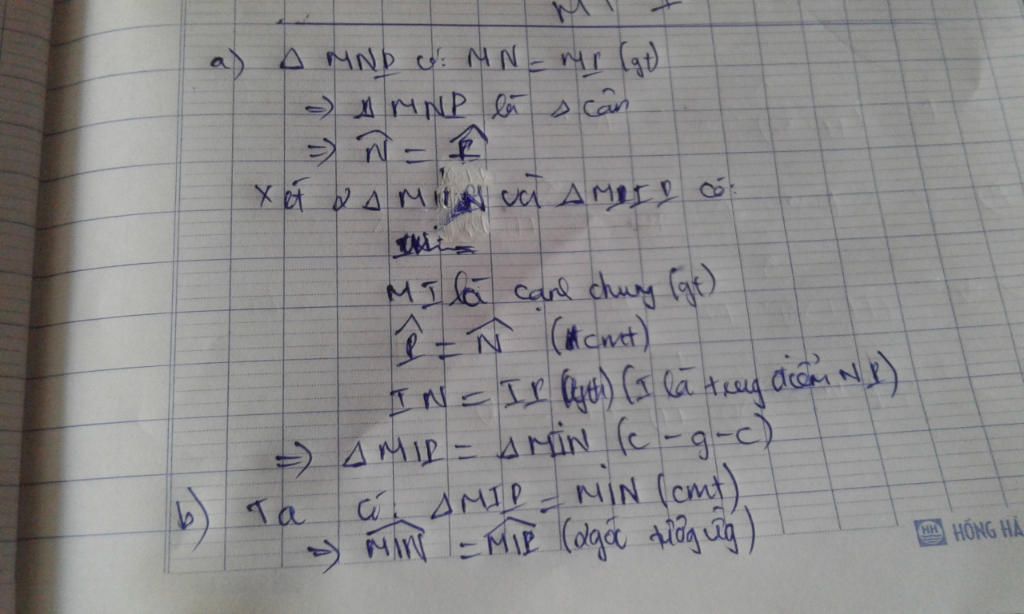 a) Δ MNP có: MN = MP (gt)
⇒ Δ MNP là Δ cân
⇒ N̂ = P̂
Xét 2 Δ MIN và Δ MIP có:
MI là cạnh chung (gt)
P̂ = N̂ (cmt)
IN = IP (gt) (I là trung điểm NP)
⇒ Δ MIP = Δ MIN (c - g - c)
b) Ta có: Δ MIP = MIN (cmt)
⇒ M̂IN = M̂IP (2 góc tương ứng)
HH HỒNG HÀ